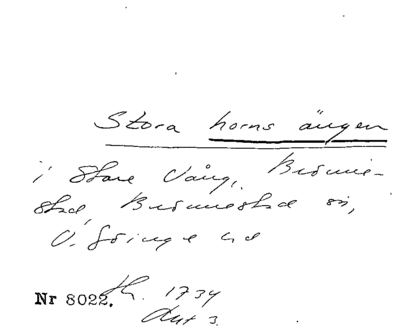 Stora horns ängen
i Stora Vång, Brönne-
stad Brönnestad sn,
V. Göinge hd
Nr 8022. 1734
Akt 3.